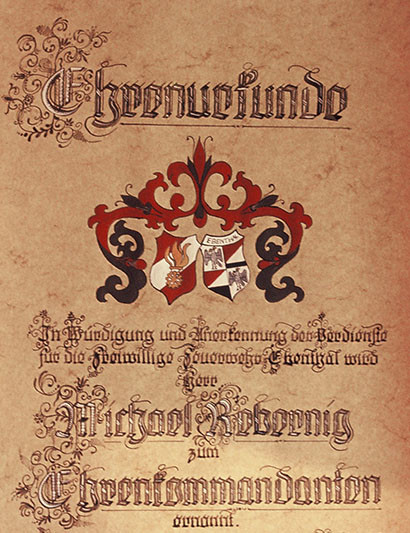 Ehrenurkunde
EBENTHAL
In Würdigung und Anerkennung der Verdienste
für die Freiwillige Feuerwehr Ebenthal wird
Herr
Michael
zum
Ehrenkommandanten
ernannt.